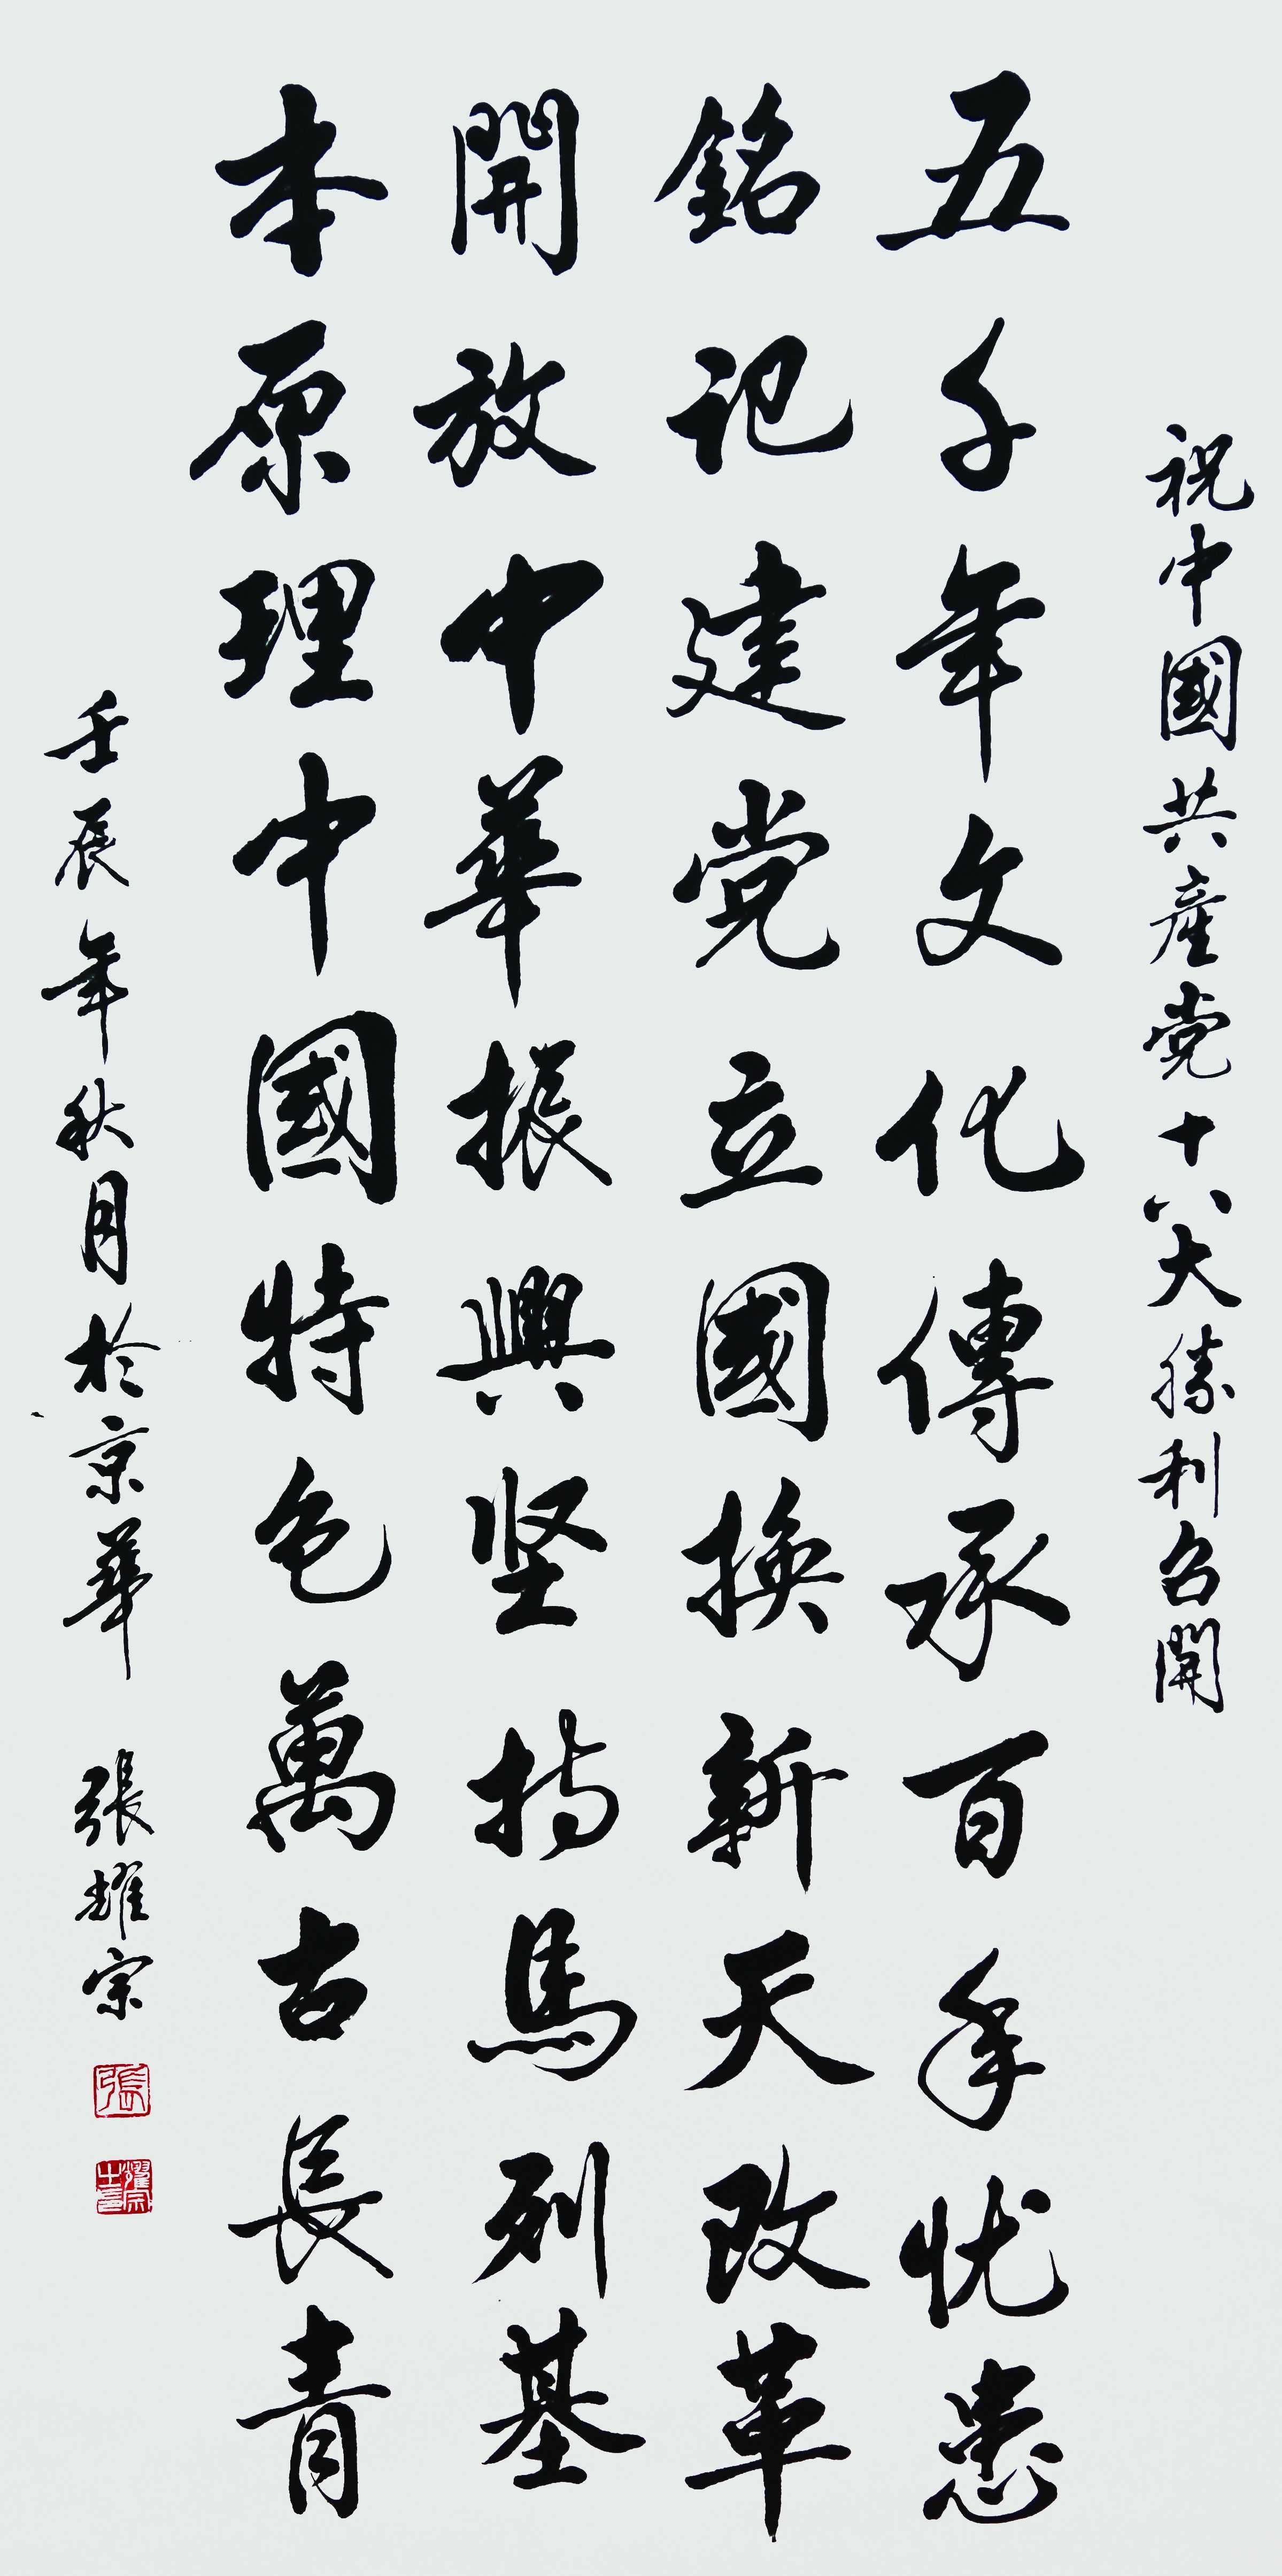 祝中國共產党十八大勝利召開
五千年文化傳承百年忧患
銘記建党立國換新天改革
開放中華振興坚持馬列基
本原理中國特色萬古長青
壬辰年秋月於京華 張耀宗
張
耀宗